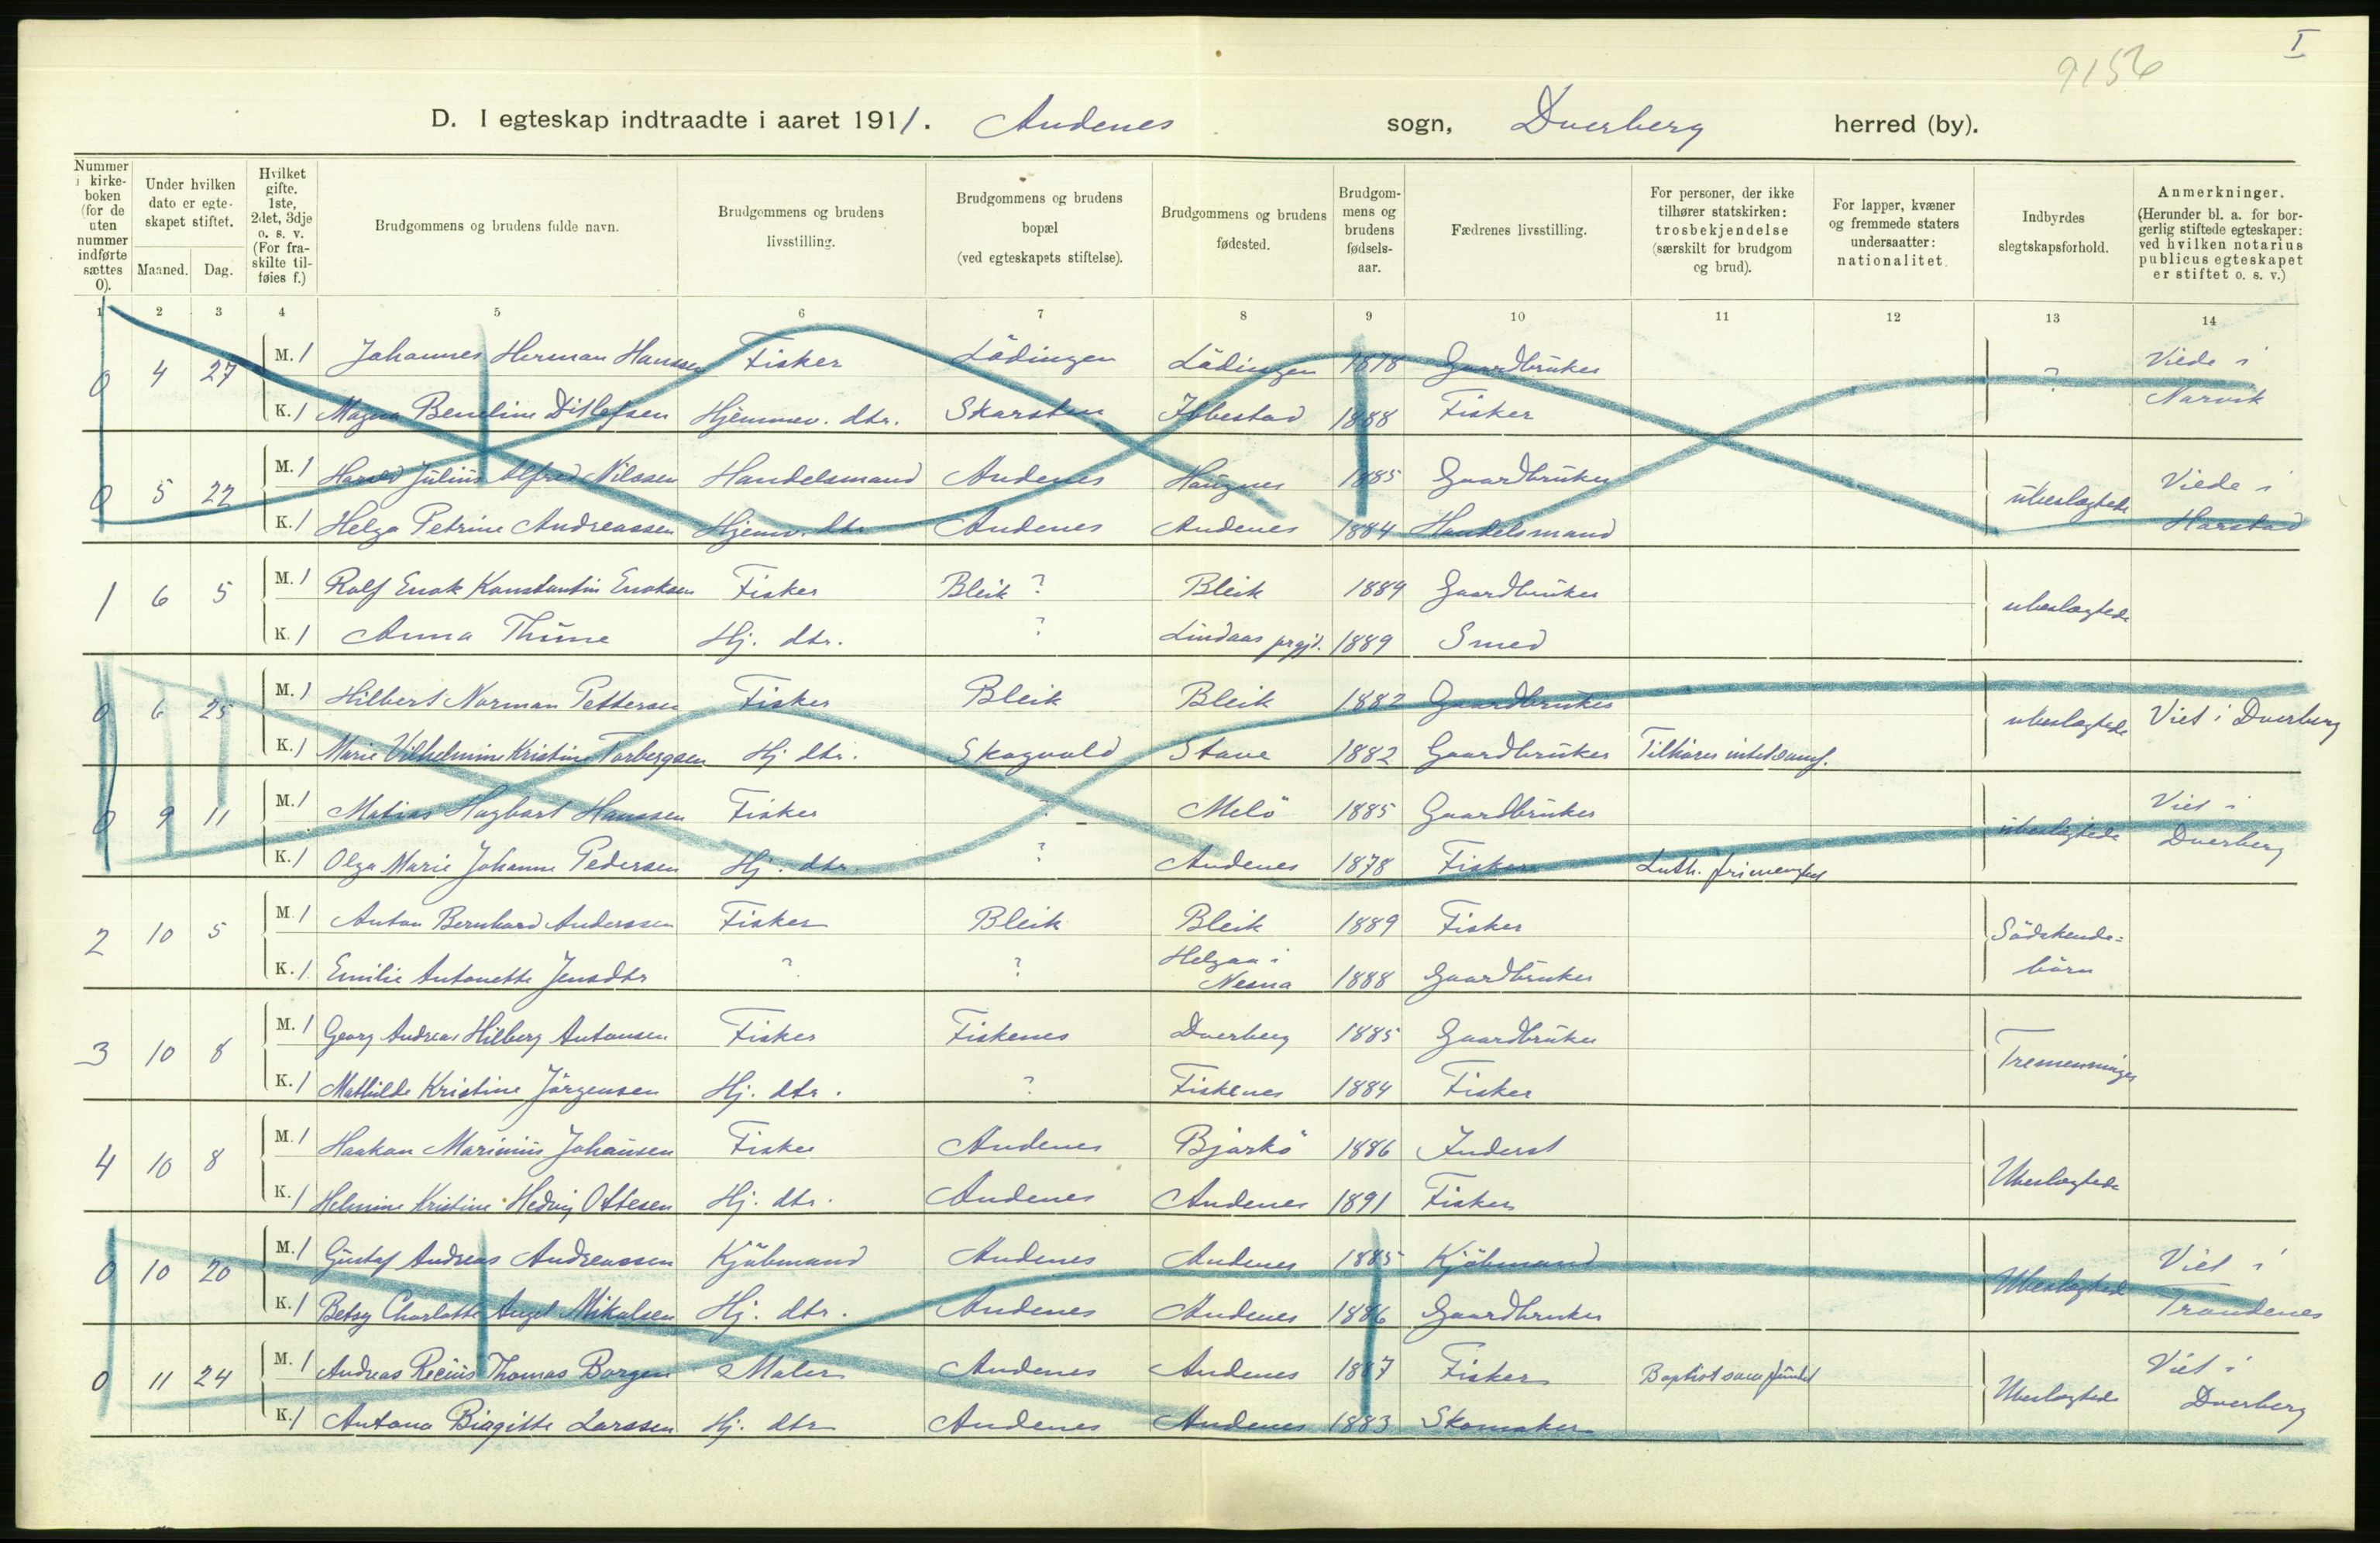 I
9156
D. I egteskap indtraadte i aaret 1911. Andenes sogn, Dverberg herred (by).
Nummer i kirke-boken (for de uten nummer indførte sættes 0).
Under hvilken dato er egte-skapet stiftet.
Maaned. Dag.
Hvilket gifte. 1ste, 2det, 3dje o. s. v. (For fra-skilte til-føies f.)
Brudgommens og brudens fulde navn.
Brudgommens og brudens livsstilling.
Brudgommens og brudens bopæl (ved egteskapets stiftelse).
Brudgommens og brudens fødested.
Brudgom-mens og brudens fødsels-aar.
Fædrenes livsstilling.
For personer, der ikke tilhører statskirken: trosbekjendelse (særskilt for brudgom og brud).
For lapper, kvæner og fremmede staters undersaatter: nationalitet.
Indbyrdes slegtskapsforhold.
Anmerkninger. (Herunder bl. a. for bor-gerlig stiftede egteskaper: ved hvilken notarius publicus egteskapet er stiftet o. s. v.)
1 2 3 4 5 6 7 8 9 10 11 12 13 14
0 4 27 M. 1 Johannes Herman Hanssen Fisker Lödingen Lödingen 1878 Gaardbruker ? Viede i
K. 1 Magna Beneline Ditlefsen Hjemmev. dtr. Skarsten Ibbestad 1888 Fisker Narvik
0 5 22 M. 1 Harald Julius Alfred Nilssen Handelsmand Andenes Haugnes 1885 Gaardbruker ubeslægtede Viede i
K. 1 Helga Petrine Andreassen Hjemv. dtr. Andenes Andenes 1884 Handelsmand Harstad
1 6 5 M. 1 Rolf Enok Konstantin Enoksen Fisker Bleik ? Bleik 1889 Gaardbruker ubeslægtede
K. 1 Anna Thune Hj. dtr. ? Lindaas prgjd. 1889 Smed
0 6 25 M. 1 Hilbert Norman Pettersen Fisker Bleik Bleik 1882 Gaardbruker ubeslægtede Viet i Dverberg
K. 1 Marie Vilhelmine Kristine Torbergsen Hj. dtr. Skogvold Stave 1882 Gaardbruker Tilhører intet samf.
0 9 11 M. 1 Matias Hagbart Hanssen Fisker ? Melö 1885 Gaardbruker ubeslægtede Viet i
K. 1 Olga Marie Johanne Pedersen Hj. dtr. ? Andenes 1878 Fisker Luth. frimenighed Dverberg
2 10 5 M. 1 Anton Bernhard Anderssen Fisker Bleik Bleik 1889 Fisker Södskende=
K. 1 Emilie Antonette Jensdtr ? ? Helgaa i Nesna 1888 Gaardbruker börn
3 10 8 M. 1 Georg Andreas Hilberg Antonsen Fisker Fiskenes Dverberg 1885 Gaardbruker Tremenninger
K. 1 Mathilde Kristine Jörgensen Hj. dtr. ? Fiskenes 1884 Fisker
4 10 8 M. 1 Haakon Marinius Johansen Fisker Andenes Bjarkö 1886 Inderst Ubeslægtede
K. 1 Helmine Kristine Hedvig Ottesen Hj. dtr. Andenes Andenes 1891 Fisker
0 10 20 M. 1 Gustaf Andreas Andreassen Kjöbmand Andenes Andenes 1885 Kjöbmand Ubeslægtede Viet i
K. 1 Betsy Charlotte Angel Mikalsen Hj. dtr. Andenes Andenes 1886 Gaardbruker Trondenes
0 11 24 M. 1 Andreas Thomas Borgen Maler Andenes Andenes 1887 Fisker Baptistsamfundet Ubeslægtede Viet i
K. 1 Antona Birgitte Larssen Hj. dtr Andenes Andenes 1883 Skomaker Dverberg